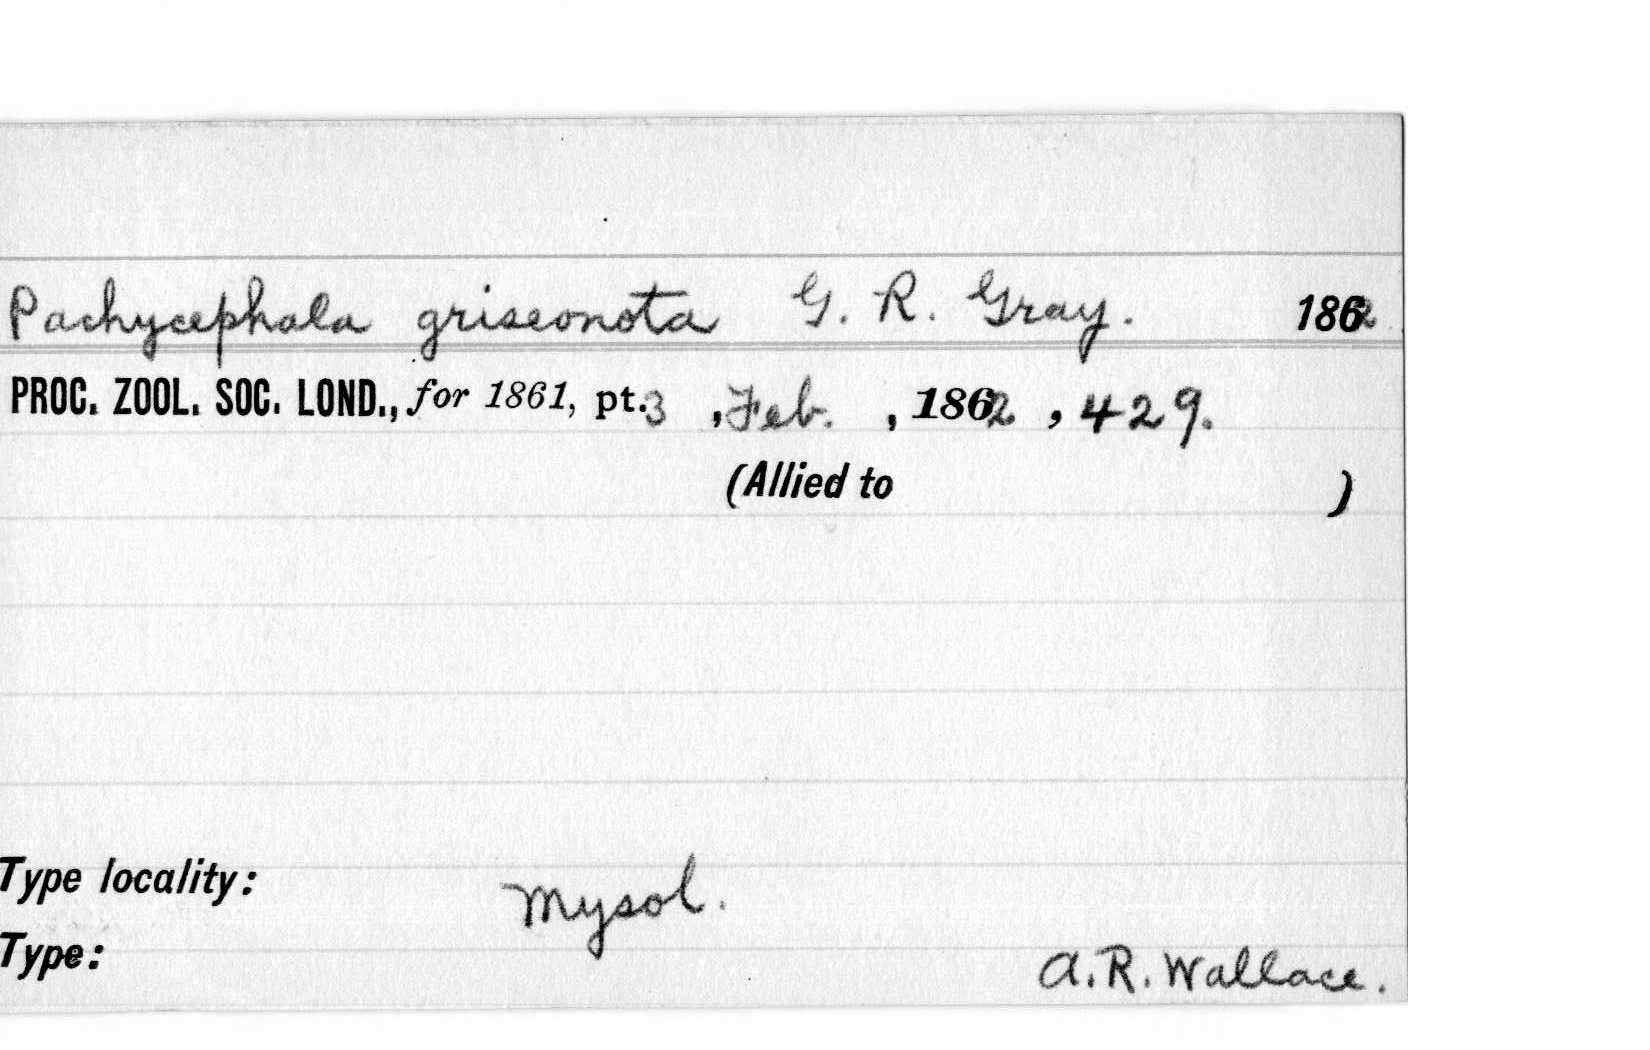 Pachycephala griseonota G. R. Gray. 1862
PROC. ZOOL. SOC. LOND., for 1861, pt. 3 , Feb. , 1862 , 429.
(Allied to )
Type locality: Mysol.
Type: A. R. Wallace.